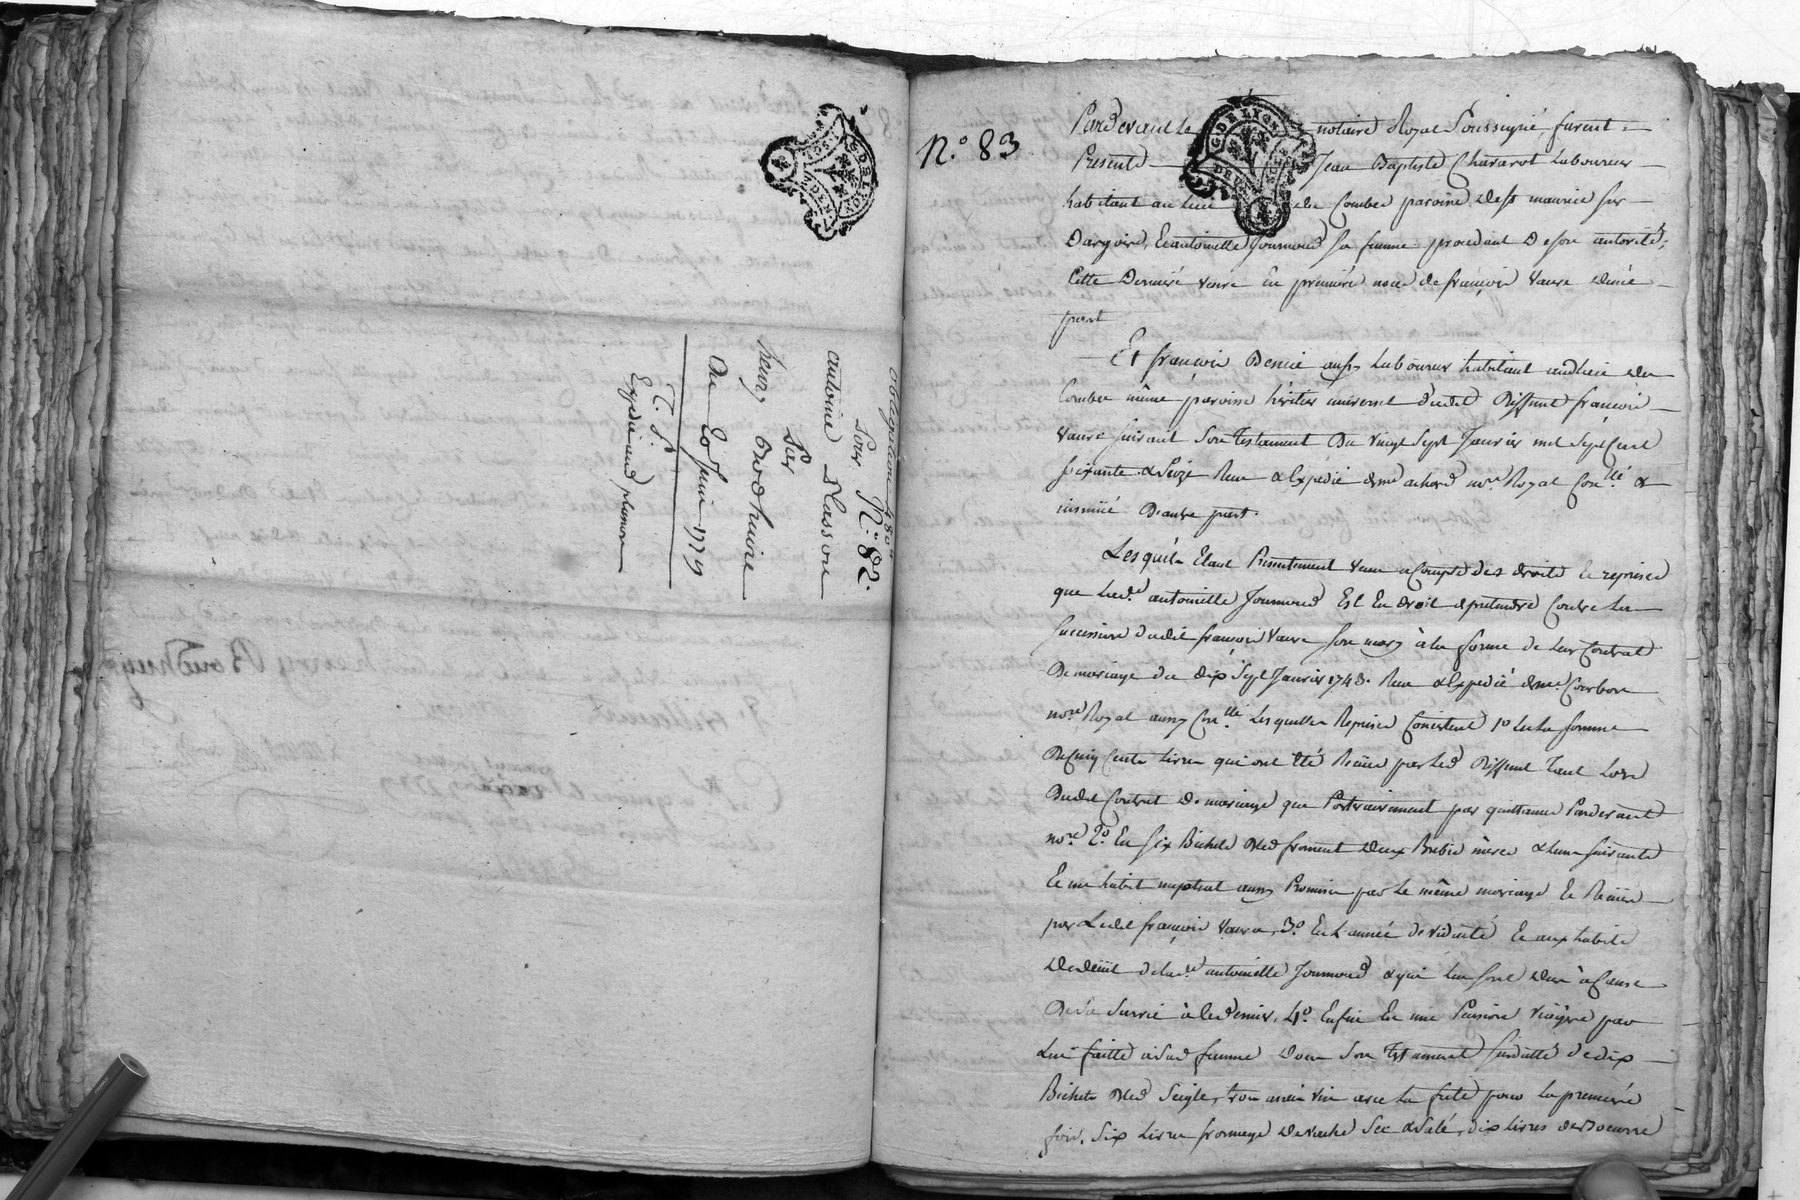 obligation 480ᵗᵗ
Pour N.° 82.
antoine Plasson
Par
henry Bvodhuire
Du 20 Juin 1779
T. S.
Expédié aud plasson
N.° 83
Pardevant Le notaire Royal Soussigné furent
Présents Jean Baptiste Chavarot Laboureur
habitant au lieu du Combe paroisse de st maurice sur
Dargoire, Et antoinette Journoud sa femme procedant De son autorité,
Cette Derniere veuve En premiere noce de françois vaure d'une
part
Et françois Denis aussy Laboureur habitant audlieu du
Combe même paroisse héritier universel dudit Deffunt françois
vaure suivant son testament Du vingt sept Janvier mil sept Cent
soixante & Seize Reçu & Expedié par me achard no.re Royal Con.llé &
insinué D'autre part.
Lesquels Etant Presentement venu a Compte des droits Et reprises
que Lad.e antoinette Journoud Est En droit de pretendre Contre La
succession dudit françois vaure son mary à la forme de Leur Contrat
De mariage du dix sept Janvier 1743. Reçu & Expedié par me Corbon
no.re Royal aussy Con.llé Lesquelles Reprises Consistent 1° En La somme
De Cinq Cents Livres qui ont été Reçües par Led. Deffunt tant Lors
Dudit Contrat De mariage que Postérieurement par quittance Pardevant
no.re 2.° En six Bichets bled froment deux Brebis mères & Leur suivante
Et un habit nuptial aussy Promis par Le même mariage Et Reçües
par Ledit françois vaure, 3.° En L'année de viduité Et aux habits
De deüil de Lad.e antoinette Journoud & qui Lui sont dus à Cause
De sa Survie à ce dernier, 4.° Enfin En une Pension viagère par
Lui faitte à sad. femme dans son testament susdatté de dix
Bichets bled Seigle, trois anées vin avec La futé pour La premiere
fois, Six Livres fromage de vache sec & salé, dix Livres de beurre